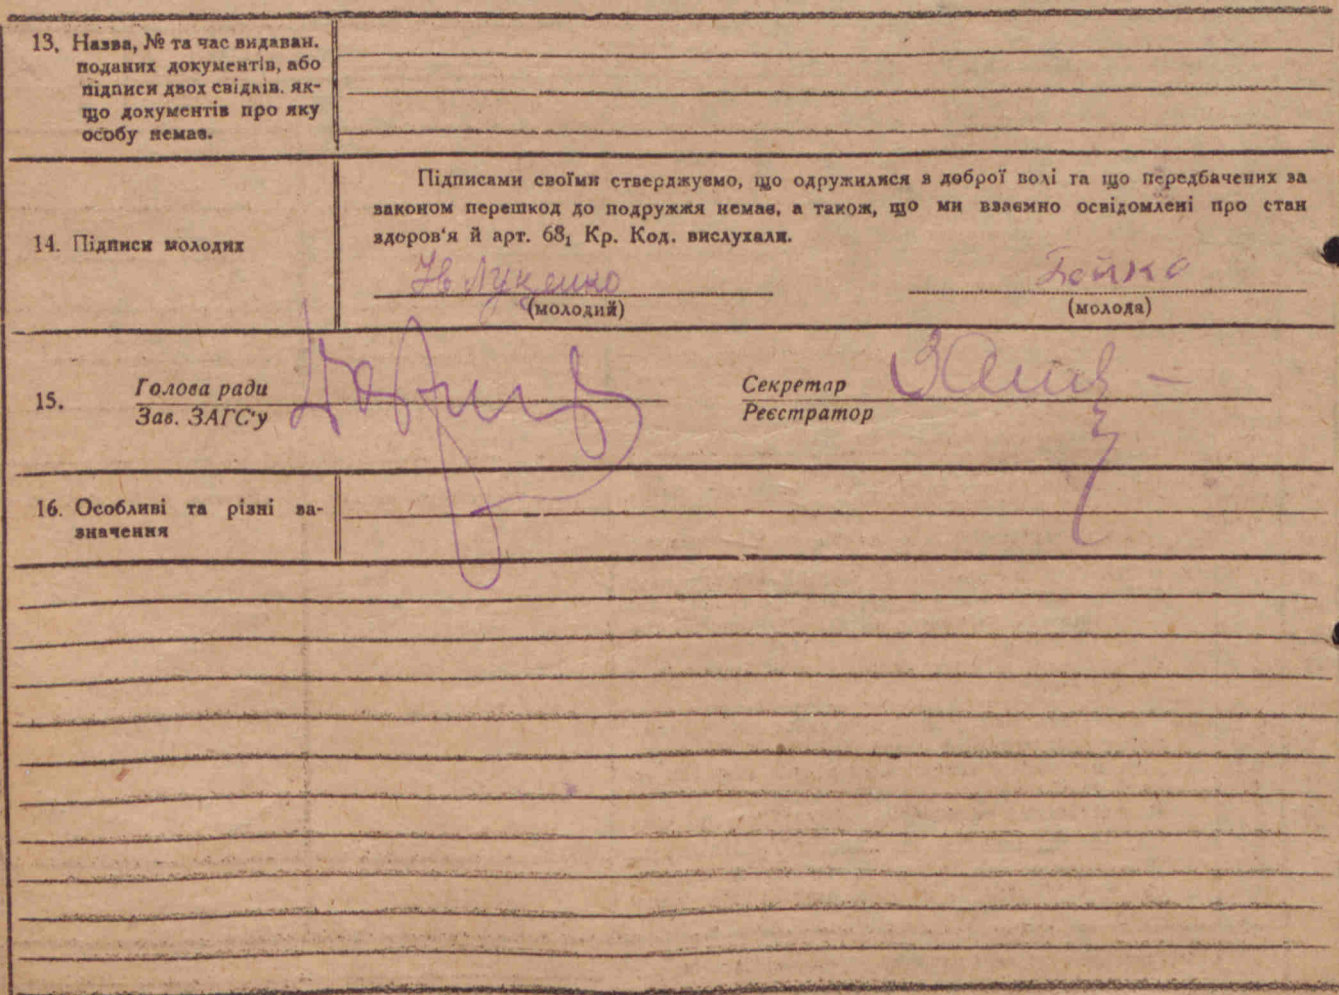 13. Назва, № та час видаван.
поданих документів, або
підписи двох свідків, як-
що документів про яку
особу немає.
Підписами своїми стверджуємо, що одружилися з доброї волі та що передбачених за
законом перешкод до подружжя немає, а також, що ми взаємно освідомлені про стан
здоров'я й арт. 68₁ Кр. Код. вислухали.
14. Підписи молодих
Ів Луценко
Бойко
(молодий)
(молода)
15.
Голова ради
Зав. ЗАГС'у
Секретар
Реєстратор
16. Особливі та різні за-
значення